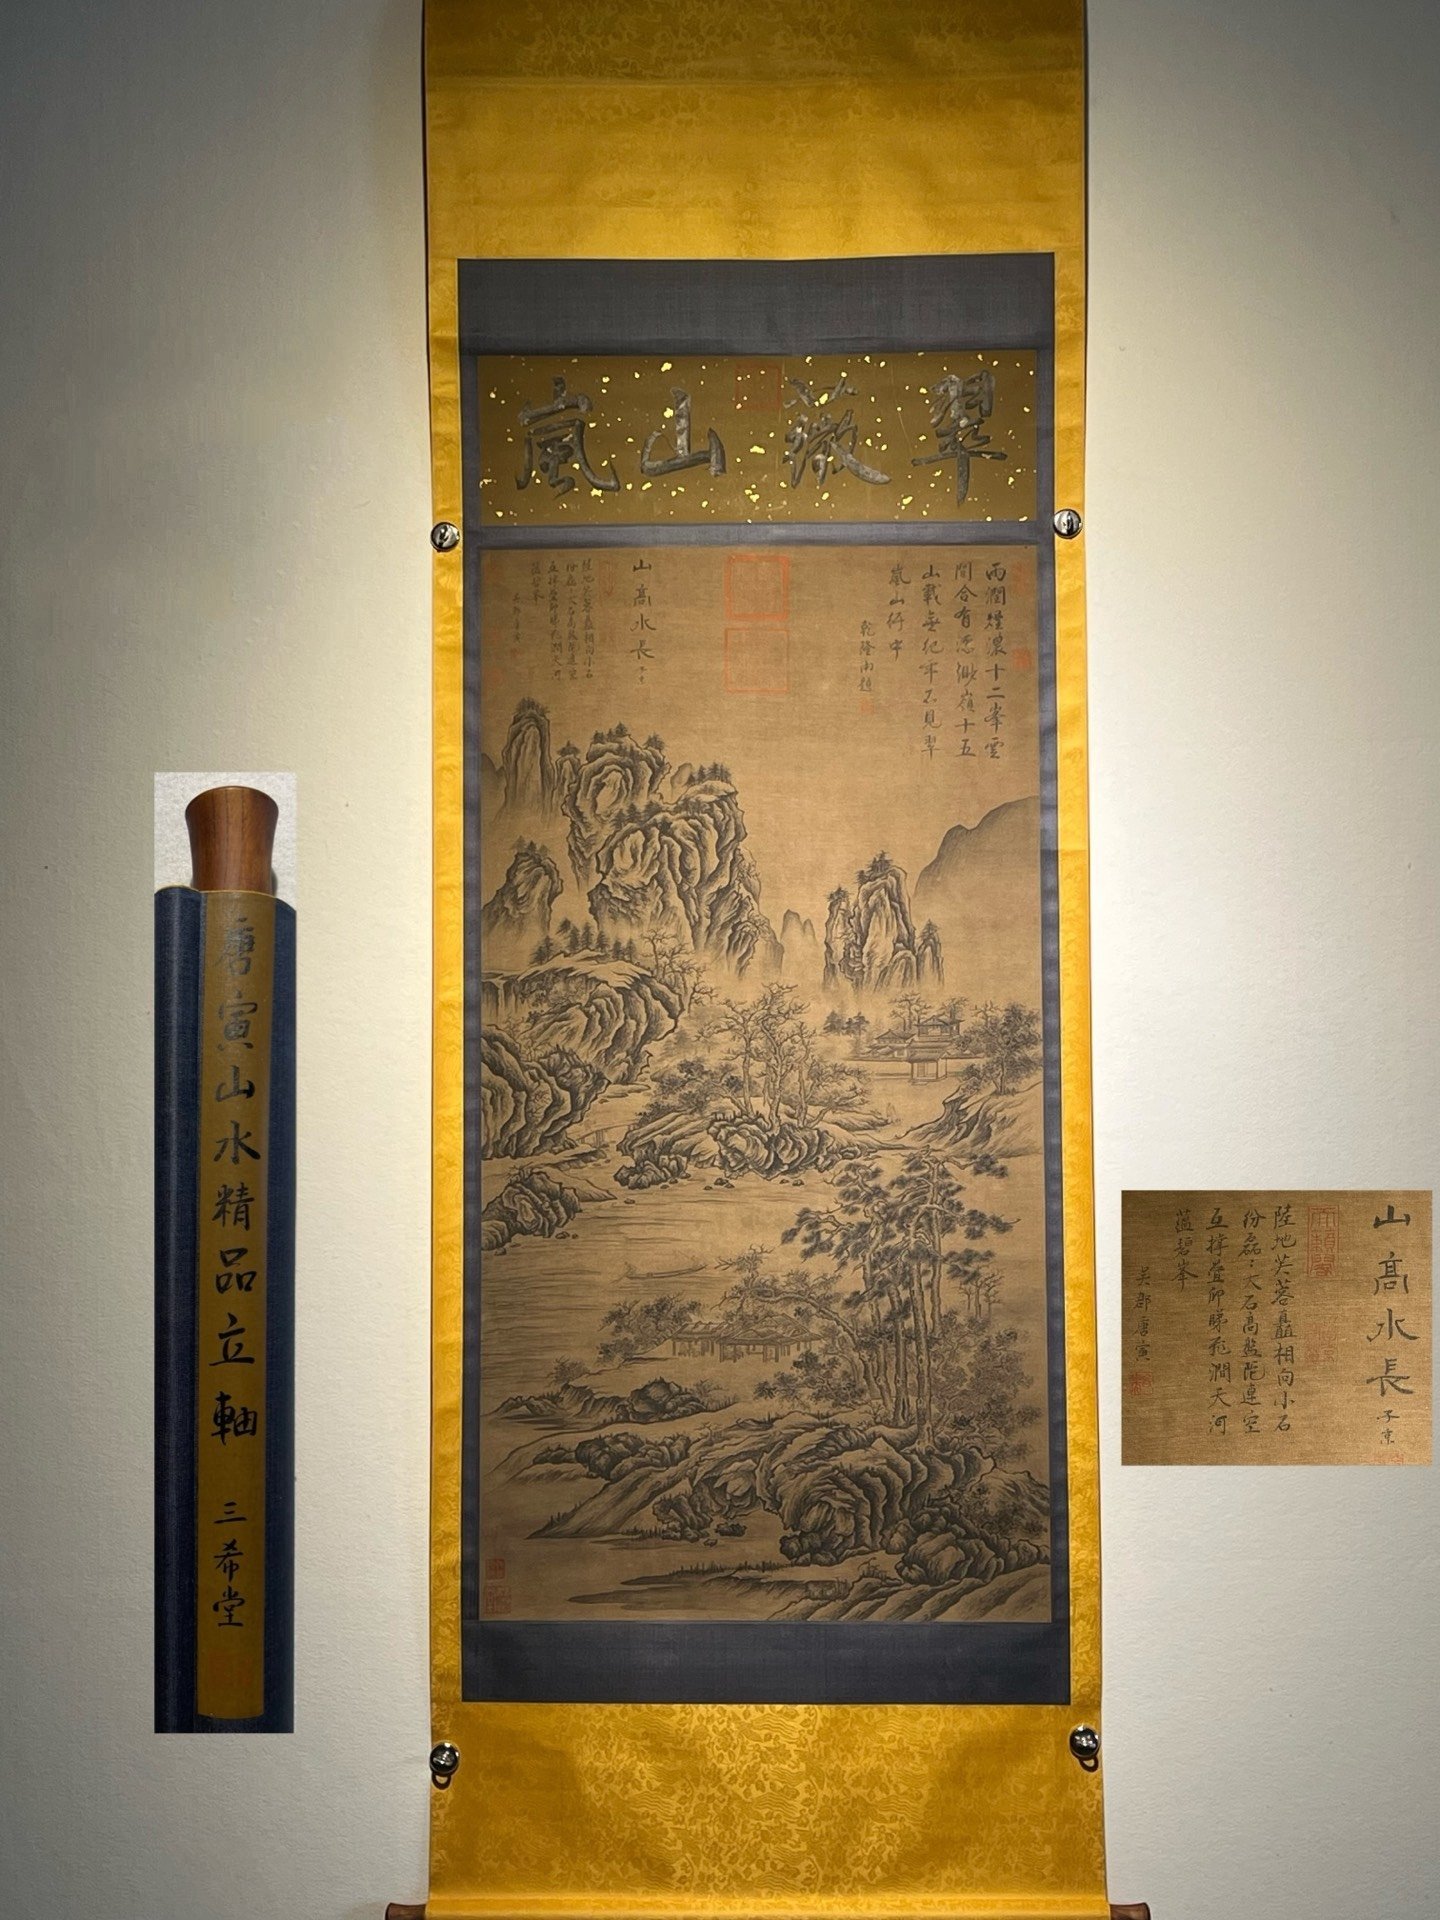 翠薇山嵐
雨潤煙濃十二峯雲
間合有
嶺十五
山載無紀年不見翠
嵐山行中
乾隆御題
山高水長
子京
陸地芙蓉矗相向小石
份磊:大石高盤陀連空
互撐疊卬睇飛澗天河
蕴碧峯
吳郡唐寅
唐寅山水精品立軸
三希堂
山高水長
子京
陸地芙蓉矗相向小石
份磊:大石高盤陀連空
互撐疊卬睇飛澗天河
蕴碧峯
吳郡唐寅